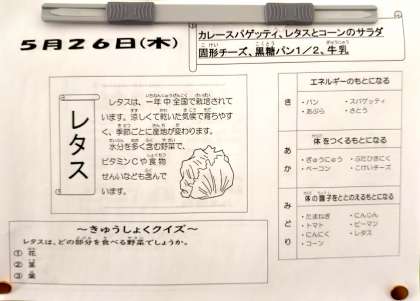 5月26日(木)
カレースパゲッティ、レタスとコーンのサラダ
固形チーズ、黒糖パン1/2、牛乳
レタス
レタスは、一年中全国で栽培されて
います。涼しくて乾いた気候で育ちやす
く、季節ごとに産地が変わります。
水分を多く含む野菜で、
ビタミンCや食物
せんいなども含んで
います。
～きゅうしょくクイズ～
レタスは、どの部分を食べる野菜でしょうか。
① 花
② 茎
③ 葉
エネルギーのもとになる
き
・パン ・スパゲティ
・あぶら ・さとう
体をつくるもとになる
あか
・ぎゅうにゅう ・ぶたひきにく
・ベーコン ・こけいチーズ
体の調子をととのえるもとになる
みどり
・たまねぎ ・にんじん
・トマト ・ピーマン
・にんにく ・レタス
・コーン